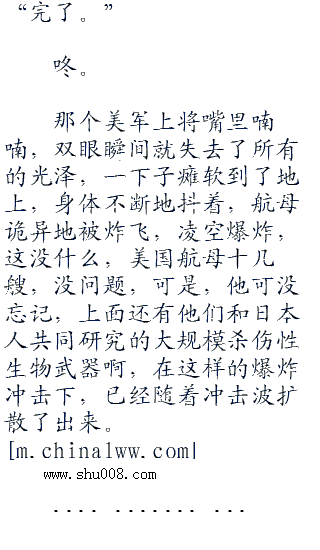 “完了。”
咚。
那个美军上将嘴里喃
喃，双眼瞬间就失去了所有
的光泽，一下子瘫软到了地
上，身体不断地抖着，航母
诡异地被炸飞，凌空爆炸，
这没什么，美国航母十几
艘，没问题，可是，他可没
忘记，上面还有他们和日本
人共同研究的大规模杀伤性
生物武器啊，在这样的爆炸
冲击下，已经随着冲击波扩
散了出来。
[m.china1ww.com]
www.shu008.com
.... ....... ...